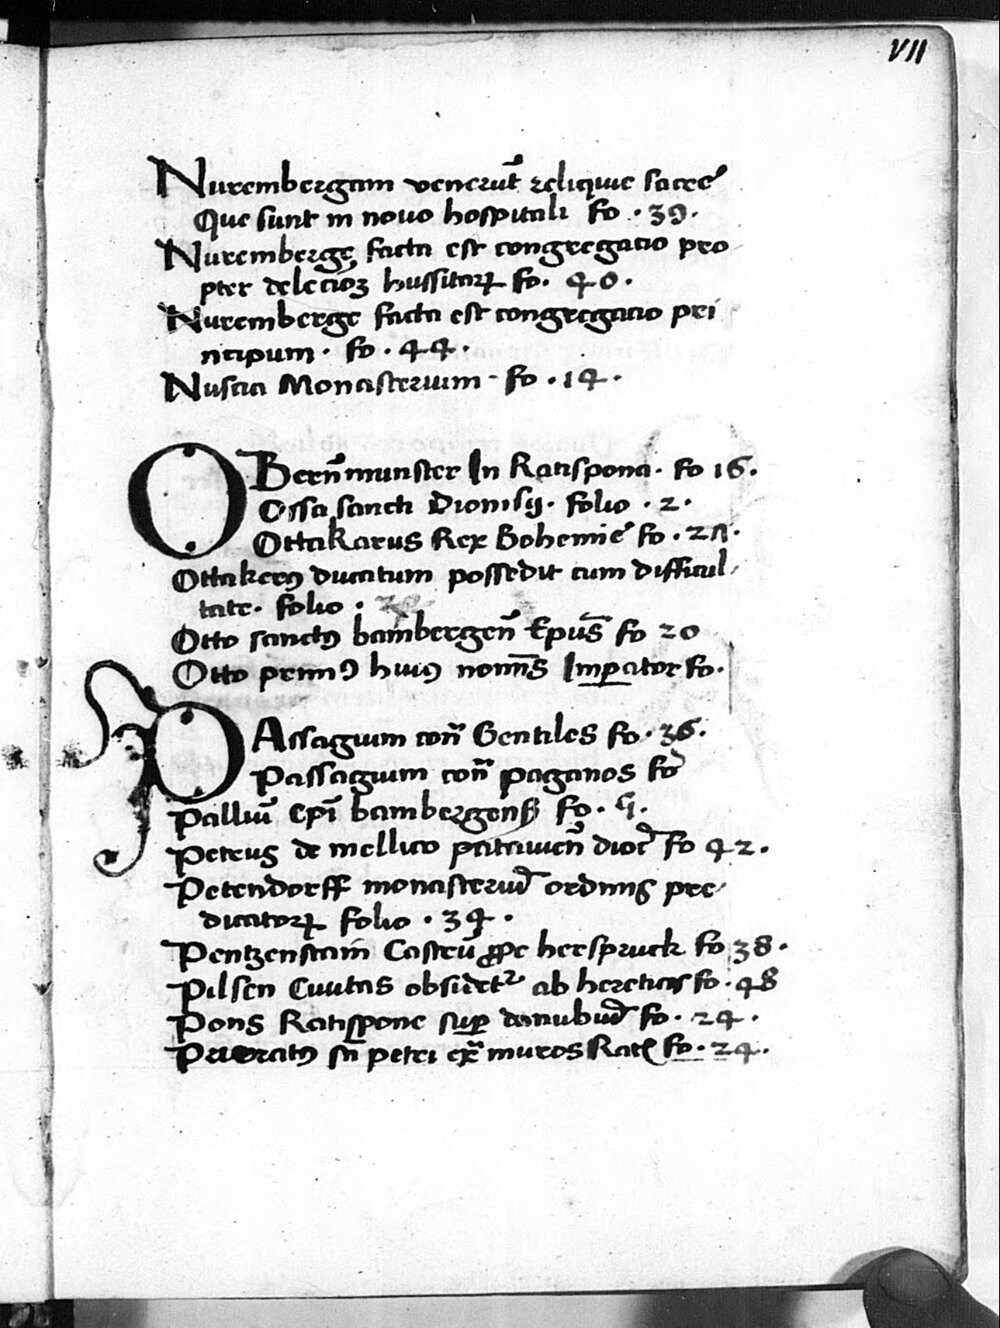 VII
Nurembergam venerūt reliquie sacre
Que sunt in novo hospitali fo . 39.
Nurembergę facta est congregatio pro
pter delecioꝫ hussitoꝝ fo. 40.
Nuremberge facta est congregatio pri
ncipum . fo . 44.
Nuscia Monasterium - fo . 14.
OBern̄munster In Ratispona . fo 16.
Ossa sancti Dionisij . folio . 2.
Ottakarus Rex Bohemie fo .
Ottakerꝯ ducatum possedit cum difficul
tate. folio .
Otto sanctꝯ bambergen̄ Ep̄us fo 20
Otto primꝯ huiꝯ nomīs Imꝑator fo.
PAssagium con̄ Gentiles fo . 36.
Passagium con̄ paganos fo
Palliū Ep̄i bambergenſ fo .
Petrus de mellico patavien̄ dioc̄ fo 42.
Petendorff monasteriū ordinis pre
dicatoꝝ folio . 34 .
Pentzenstain Castrū ꝓpe herspruck fo 38.
Pilsen Civitas obsidet᷑ ab hereticis fo . 48
Pons Ratispone suꝑ danubiū fo . 24 .
Prioratꝯ sn̄ petri ex̄ muros Rat̄ fo . 24.